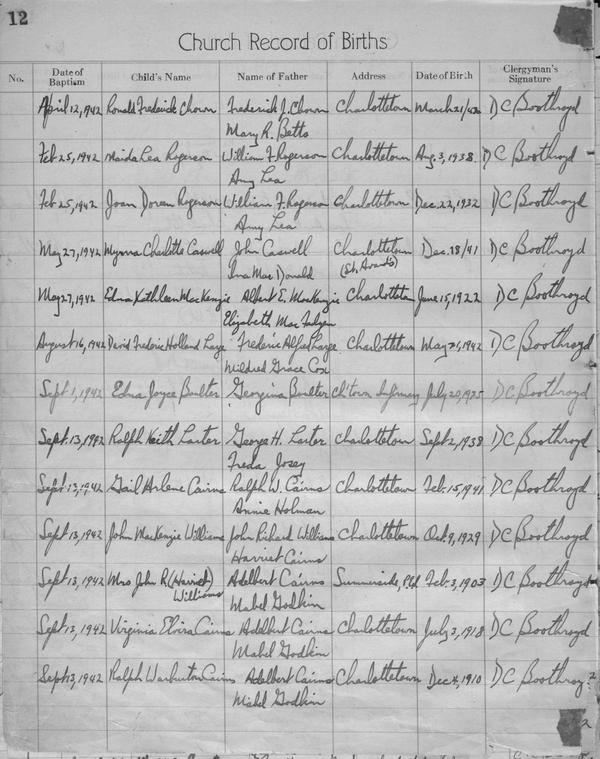 12
Church Record of Births
No. Date of Baptism Child's Name Name of Father Address Date of Birth Clergyman's Signature
April 12, 1942 Ronald Frederick Chown Frederick J. Chown Charlottetown March 21/42 D C Boothroyd
Mary R. Betts
Feb 25, 1942 Maida Lea Rogerson William F. Rogerson Charlottetown Aug. 3, 1938 D C Boothroyd
Amy Lea
Feb 25, 1942 Joan Doreen Rogerson William F. Rogerson Charlottetown Dec. 22, 1932 D C Boothroyd
Amy Lea
May 27, 1942 Myrna Charlotte Caswell John Caswell Charlottetown Dec. 28/41 D C Boothroyd
Ina MacDonald
May 27, 1942 Edna Kathleen MacKenzie Albert E. MacKenzie Charlotteton June 15, 1922 D C Boothroyd
Elizabeth Mac
August 16, 1942 David Frederic Holland Large Frederic Alfred Large Charlottetown May 1942 D C Boothroyd
Mildred Grace Cox
Sept 1, 1942 Edna Joyce Boulter Georgina Boulter Ch'town Infirmary July 20, 1925 D C Boothroyd
Sept. 13, 1942 Ralph Keith Larter George H. Larter Charlottetown Sept 2, 1938 D C Boothroyd
Freda Josey
Sept 13, 1942 Gail Arlene Cairns Ralph W. Cairns Charlottetown Feb. 15, 1941 D C Boothroyd
Annie Holman
Sept 13, 1942 John MacKenzie Williams John Richard Williams Charlottetown Oct. 9, 1929 D C Boothroyd
Harriet Cairns
Sept 13, 1942 Mrs John R. (Harriet) Adelbert Cairns Summerside, PEI Feb. 3, 1903 D C Boothroyd
Williams Mabel Godkin
Sept 13, 1942 Virginia Elvira Cairns Adelbert Cairns Charlottetown July 3, 1918 D C Boothroyd
Mabel Godkin
Sept 13, 1942 Ralph Warburton Cairns Adelbert Cairns Charlottetown Dec 4, 1910 D C Boothroy
Mabel Godkin
2